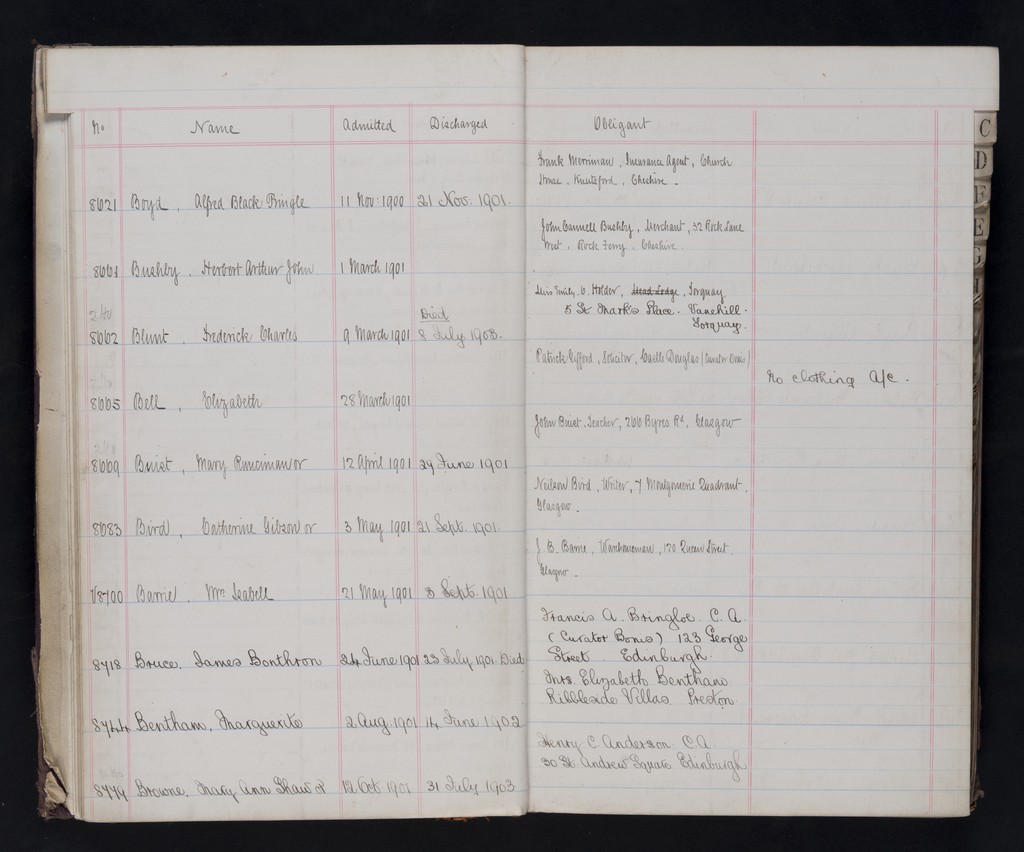 No Name Admitted Discharged Obligant
Frank Merriman, Insurance Agent, Church
House, Knutsford, Cheshire.
8621 Boyd, Alfred Black Pringle 11 Nov: 1900 21 Nov. 1901.
John Cannell Bushby, Merchant, 32 Rock Lane
West, Rock Ferry, Cheshire.
8661 Bushby, Herbert Arthur John 1 March 1901
Miss Emily C. Holder, Mead Lodge, Torquay
5 St. Mark's Place. Vanehill.
Torquay.
Died
8662 Blunt, Frederick Charles 9 March 1901 8 July 1903.
Patrick Gifford, Solicitor, Castle Douglas (Curator Bonis)
No clothing A/c.
8665 Bell, Elizabeth 28 March 1901
John Buist, Teacher, 266 Byres Rd, Glasgow
8669 Buist, Mary Runciman or 12 April 1901 29 June 1901
Neilson Bird, Writer, 7 Montgomerie Quadrant,
Glasgow.
8683 Bird, Catherine Gibson or 3 May 1901 21 Sept. 1901.
J. B. Barrie, Warehouseman, 120 Queen Street.
Glasgow.
8700 Barrie, Mrs Isabell 21 May 1901 3 Sept. 1901
Francis A. Bringloe. C.A.
(Curator Bonis) 123 George
Street. Edinburgh.
8718 Bruce, James Bonthron 24 June 1901 23 July 1901 Died
Mrs. Elizabeth Bentham
Ribbleside Villas. Preston.
8744 Bentham, Marguerite 2 Aug 1901 14 June 1902
Henry C. Anderson. C.A.
30 St. Andrew Square Edinburgh
8779 Browne, Mary Ann Shaw or 12 Oct 1901 31 July 1903
C
D
E
G